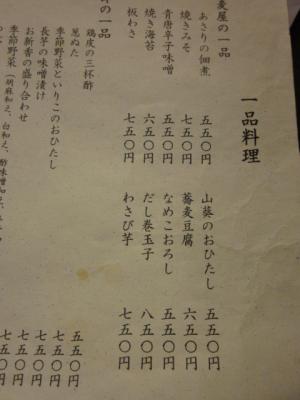 一品料理
麦屋の一品
あさりの佃煮 五五〇円
焼きみそ 七五〇円
青唐辛子味噌 五五〇円
焼き海苔 六五〇円
板わさ 七五〇円
山葵のおひたし 五五〇円
蕎麦豆腐 六五〇円
なめこおろし 五五〇円
だし巻玉子 八五〇円
わさび芋 七五〇円
の一品
鶏皮の三杯酢 五五〇円
葱ぬた 七五〇円
季節野菜といりこのおひたし 七五〇円
長芋の味噌漬け 七五〇円
お新香の盛り合わせ 七五〇円
季節野菜（胡麻和え、白和え、酢味噌和え